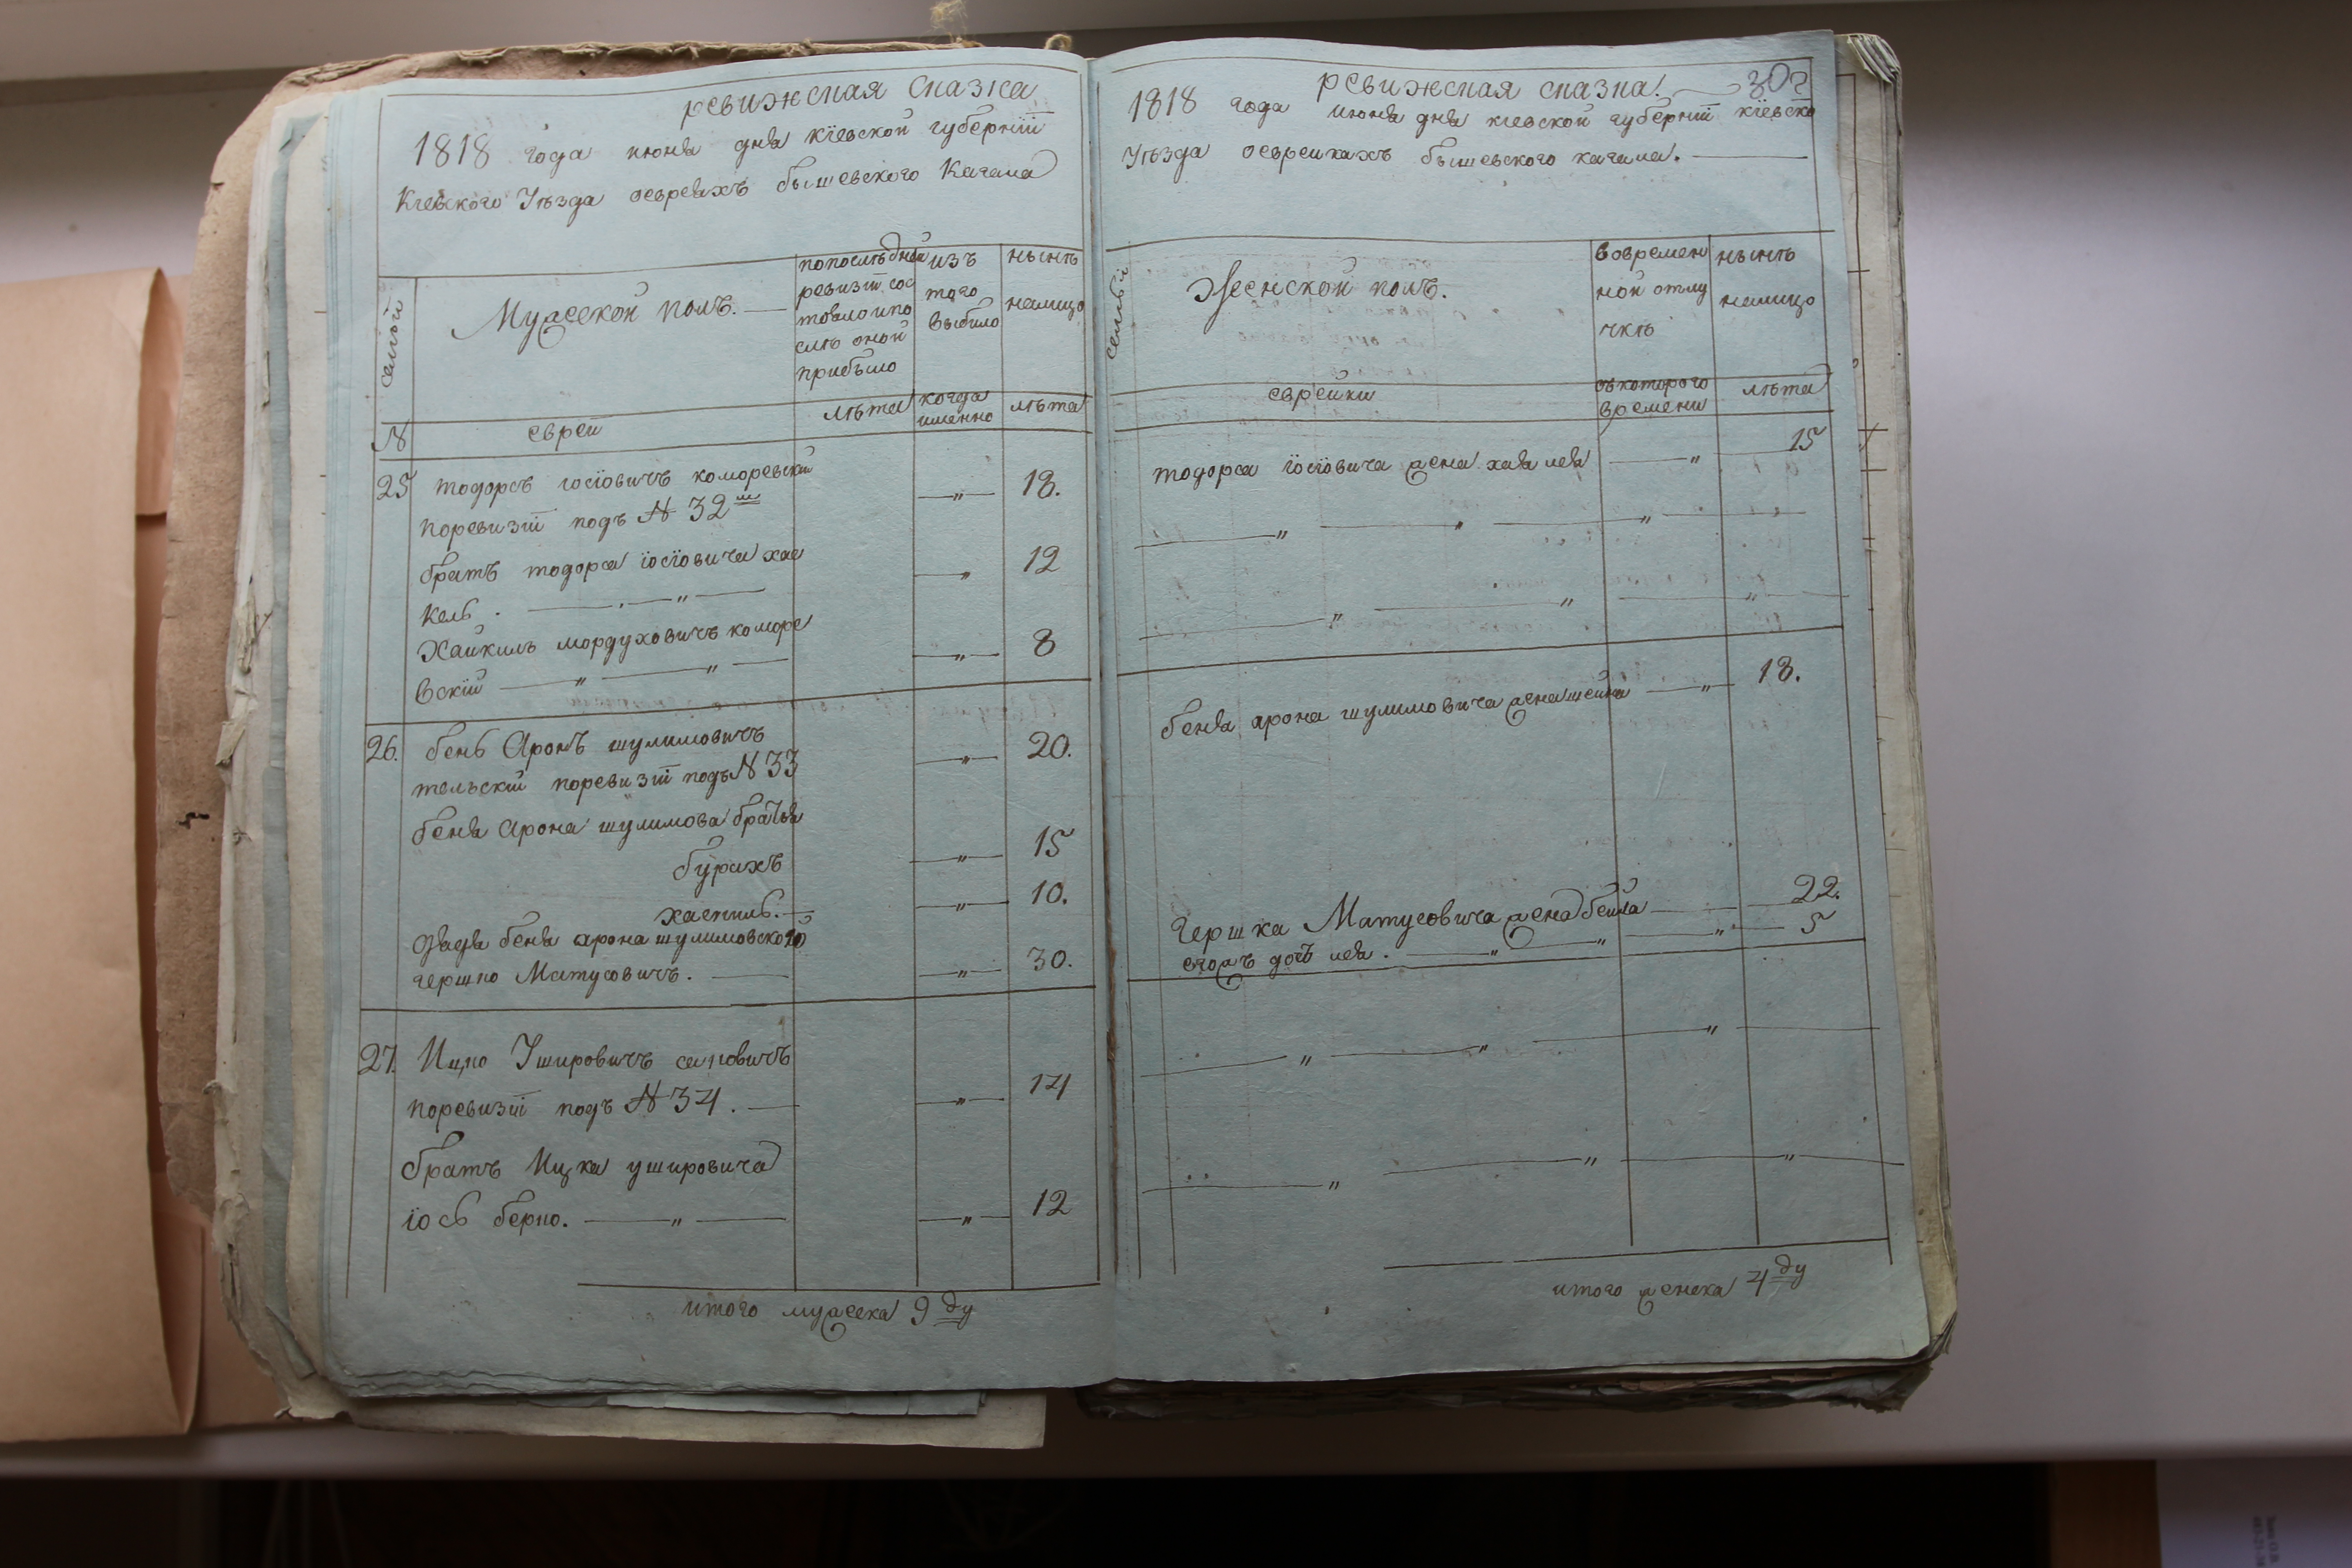 ревижская сказка
1818 года июня дня кіевской губерніи
Кіевского Уезда оевреяхъ бышевского Кагала
семьи
Мужеской полъ.
попоследней
ревизіи сос
тоялоипо
сле оной
прибыло
изъ
того
выбыло
ныне
налицо
№
евреи
лета
когда
именно
лета
25 тодоръ іосіовичъ коморевскій
поревизіи подъ № 32 " 18.
братъ тодора іосіовича хас
кель . " " 12
Хаикиль мордуховичъ коморе
вскій " " " 8
26. бень Аронъ шулимовичъ
тельскій поревизіи подъ № 33 " 20.
беня Арона шулимова братья
бурихъ " 15
хаскиль. " 10.
дядя беня арона шулимовского
гершко Матусовичъ. " 30.
27. Ицко Ушировичъ
поревизіи подъ № 34. " 14
братъ Ицка ушировича
іось берко. " " 12
итого мужеска 9 ду
ревижская сказка. 302
1818 года июня дня кіевской губерніи кіевско
Уезда оеврейкахъ бышевского кагала.
семьи
Женской полъ.
вовремен
ной отлу
чке
ныне
налицо
еврейки
скоторого
времени
лета
тодора іосіовича жена хая лея " 15
" " "
" " "
беня арона шулимовича жена шейна " 18.
гершка Матусовича жена бейла 22.
егожъ дочъ лея . " " " 5
" " "
" " "
итого женска 4 ду